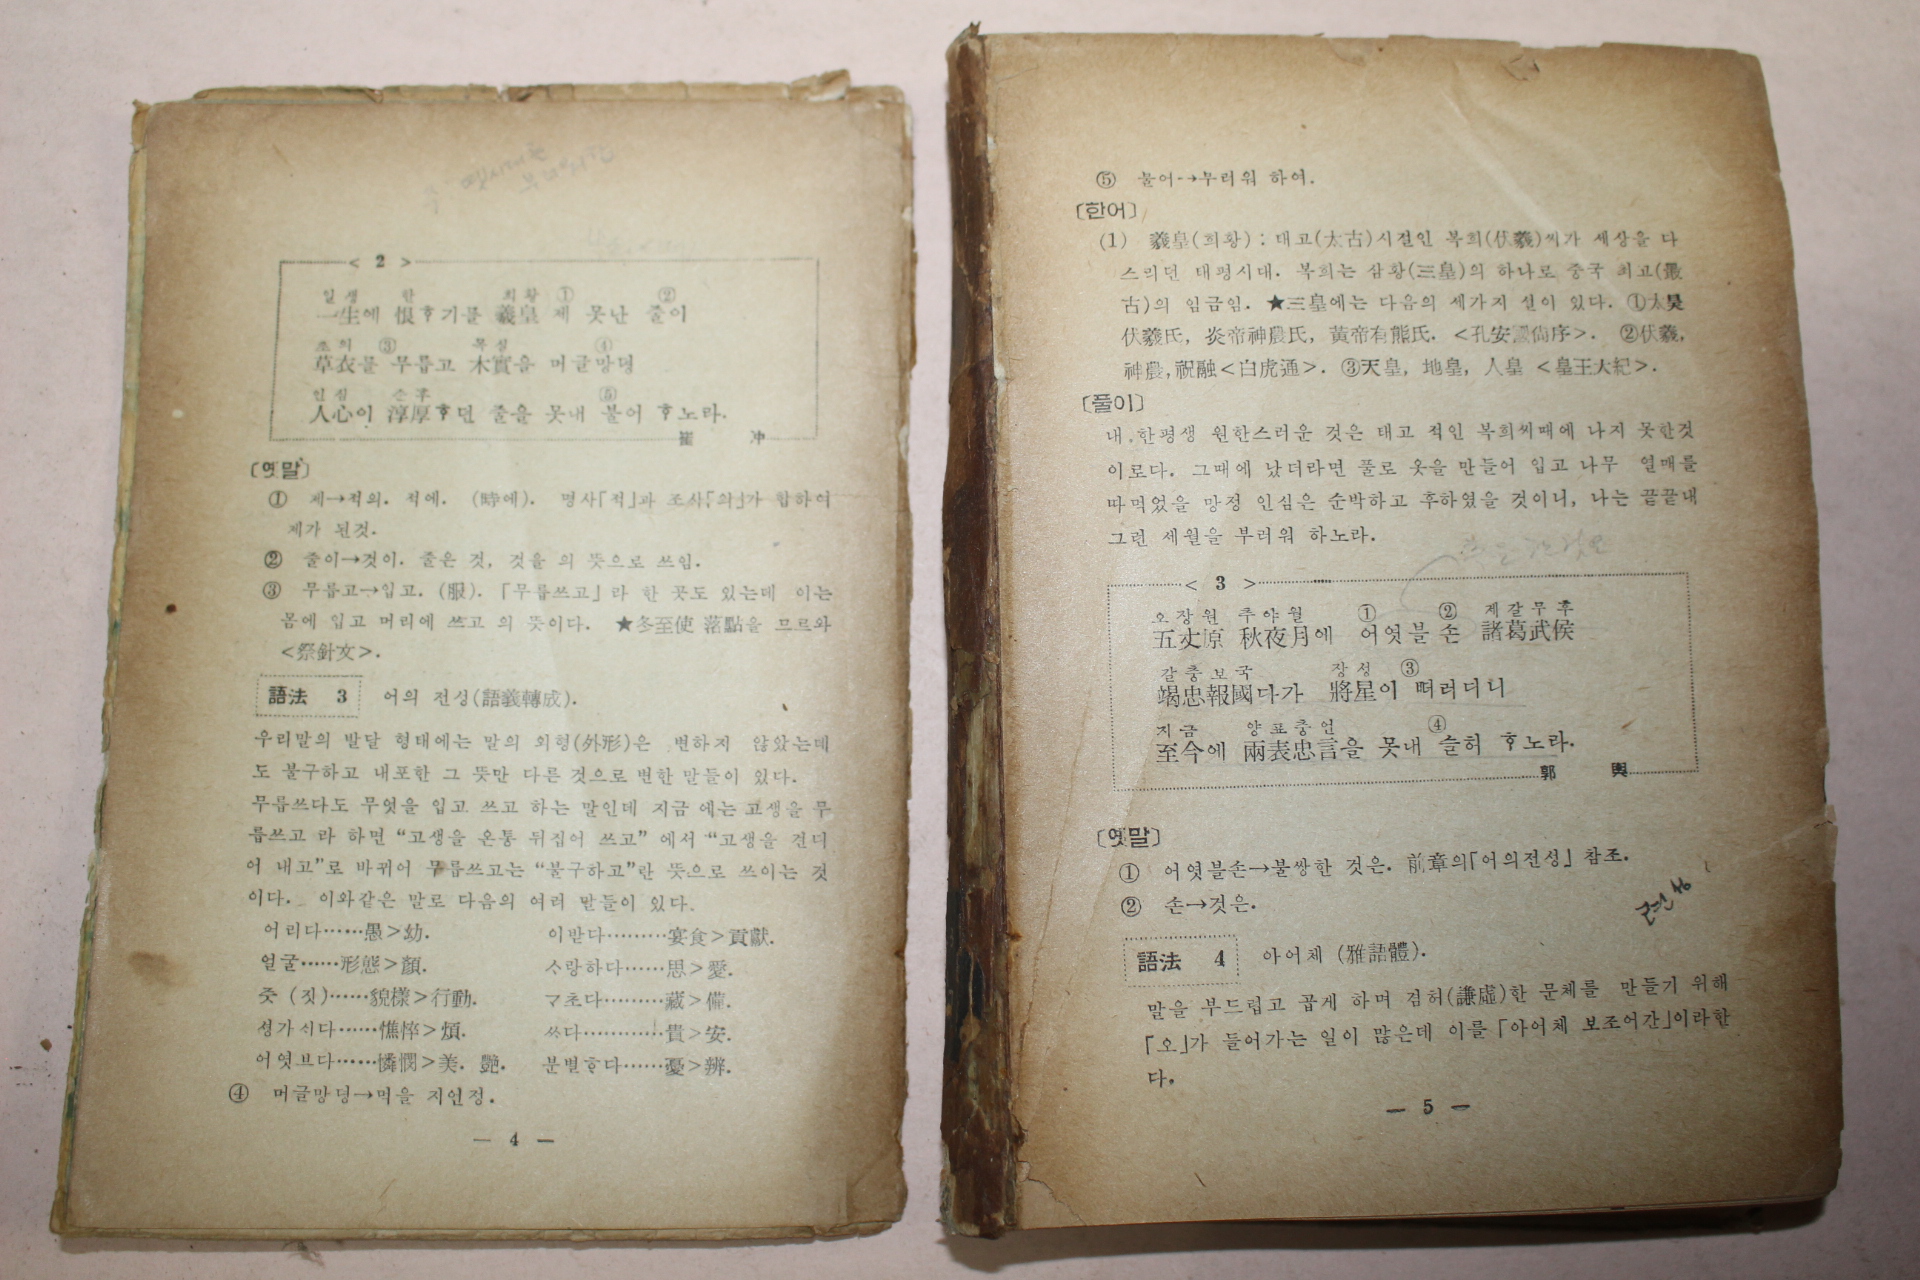 < 2 >
일생 한 희황 ① ②
一生에 恨ᄒᆞ기를 羲皇 제 못난 줄이
초의 ③ 목실 ④
草衣를 무릅고 木實을 머글망뎡
인심 순후 ⑤
人心이 淳厚ᄒᆞ던 줄을 못내 불어 ᄒᆞ노라.
崔 冲
〔옛말〕
① 제→적의. 적에. (時에). 명사「적」과 조사「의」가 합하여
제가 된것.
② 줄이→것이. 줄은 것, 것을 의 뜻으로 쓰임.
③ 무릅고→입고. (服). 「무릅쓰고」라 한 곳도 있는데 이는
몸에 입고 머리에 쓰고 의 뜻이다. ★冬至使 落點을 므르와
<祭針文>.
語法 3 어의 전성(語義轉成).
우리말의 발달 형태에는 말의 외형(外形)은 변하지 않았는데
도 불구하고 내포한 그 뜻만 다른 것으로 변한 말들이 있다.
무릅쓰다도 무엇을 입고 쓰고 하는 말인데 지금 에는 고생을 무
릅쓰고 라 하면 “고생을 온통 뒤집어 쓰고” 에서 “고생을 견디
어 내고”로 바뀌어 무릅쓰고는 “불구하고”란 뜻으로 쓰이는 것
이다. 이와같은 말로 다음의 여러 말들이 있다.
어리다……愚>幼. 이받다………宴食>貢獻.
얼굴……形態>顔. ᄉᆞ랑하다……思>愛.
즛 (짓)……貌樣>行動. ᄀᆞ초다………藏>備.
셩가시다……憔悴>煩. ᄊᆞ다…………貴>安.
어엿브다……憐憫>美. 艶. 분별ᄒᆞ다……憂>辨.
④ 머글망뎡→먹을 지언정.
— 4 —
⑤ 불어→부러워 하여.
〔한어〕
(1) 羲皇(희황) : 태고(太古)시절인 복희(伏羲)씨가 세상을 다
스리던 태평시대. 복희는 삼황(三皇)의 하나로 중국 최고(最
古)의 임금임. ★三皇에는 다음의 세가지 설이 있다. ①太昊
伏羲氏, 炎帝神農氏, 黃帝有熊氏. <孔安國尙序>. ②伏羲,
神農, 祝融<白虎通>. ③天皇, 地皇, 人皇 <皇王大紀>.
〔풀이〕
내 한평생 원한스러운 것은 태고 적인 복희씨때에 나지 못한것
이로다. 그때에 났더라면 풀로 옷을 만들어 입고 나무 열매를
따먹었을 망정 인심은 순박하고 후하였을 것이니, 나는 끝끝내
그런 세월을 부러워 하노라.
< 3 >
오장원 추야월 ① ② 제갈무후
五丈原 秋夜月에 어엿블 손 諸葛武侯
갈충보국 장성 ③
竭忠報國다가 將星이 ᄠᅥ러디니
지금 양표충언 ④
至今에 兩表忠言을 못내 슬허 ᄒᆞ노라.
郭 輿
〔옛말〕
① 어엿블손→불쌍한 것은. 前章의「어의전성」 참조.
② 손→것은.
語法 4 아어체 (雅語體).
말을 부드럽고 곱게 하며 겸허(謙虛)한 문체를 만들기 위해
「오」가 들어가는 일이 많은데 이를 「아어체 보조어간」이라한
다.
— 5 —